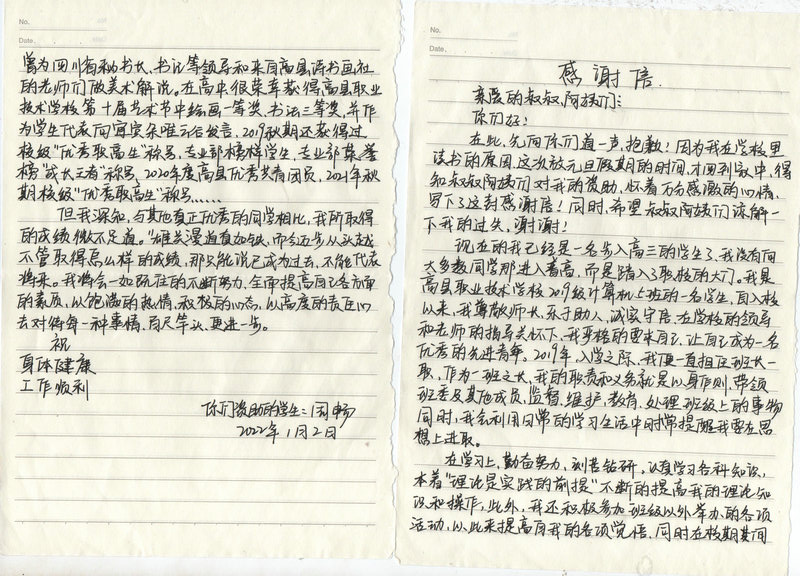 No.
Date.
感谢信
亲爱的叔叔阿姨们:
你们好!
在此,先向你们道一声,抱歉!因为我在学校里
读书的原因,这次放元旦假期的时间,才回到家中,得
知叔叔阿姨们对我的资助,怀着万分感激的心情,
写下这封感谢信!同时,希望叔叔阿姨们谅解一
下我的过失,谢谢!
现在的我已经是一名步入高三的学生了,我没有向
大多数同学那进入普高,而是踏入了职校的大门。我是
高县职业技术学校2019级计算机上班的一名学生,自入校
以来,我尊敬师长,乐于助人,诚实守信,在学校的领导
和老师的指导关怀下,我严格的要求自己,让自己成为一名
优秀的先进青年。2019年,入学之际,我便一直担任班长一
职,作为一班之长,我的职责和义务就是以身作则,带领
班委及其他成员,监督,维护,教育,处理班级上的事物
同时,我会利用日常的学习生活中时常提醒我要在思
想上进取。
在学习上,勤奋努力,刻苦钻研,认真学习各科知识,
本着"理论是实践的前提"不断的提高我的理论知
识和操作,此外,我还积极参加班级以外举办的各项
活动,从此来提高自我的各项觉悟,同时在校期间
No.
Date.
曾为四川省秘书长、书记等领导和来自高县诗书画社
的老师们做美术解说。在高中很荣幸获得高县职业
技术学校第十届艺术节中绘画一等奖,书法三等奖,并作
为学生代表向宜宾朵唯云谷发言,2019秋期还获得过
校级"优秀职高生"称号,专业部榜样学生,专业部集誉
榜"成长王者"称号,2020年度高县优秀共青团员,2021年秋
期校级"优秀职高生"称号……
但我深知,与其他真正优秀的同学相比,我所取得
的成绩微不足道。"雄关漫道真如铁,而今迈步从头越
不管取得怎么样的成绩,那只能说已成为过去,不能代表
将来。我将会一如既往的不断努力,全面提高自己各方面
的素质,以饱满的热情,积极的心态,以高度的责任心
去对待每一种事情,百尺竿头,更进一步。
祝
身体健康
工作顺利
你们资助的学生:周畅
2022年1月2日